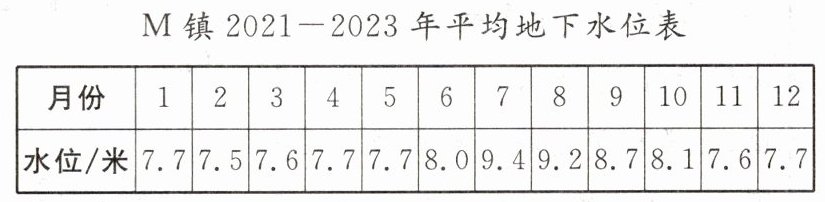 M 镇 2021—2023 年平均地下水位表
月份 1 2 3 4 5 6 7 8 9 10 11 12
水位/米 7.7 7.5 7.6 7.7 7.7 8.0 9.4 9.2 8.7 8.1 7.6 7.7